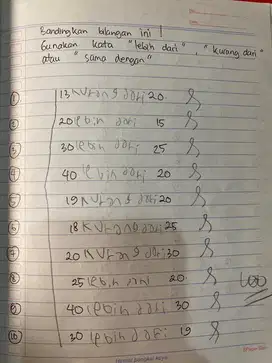 Bandingkan bilangan ini !
Gunakan kata "lebih dari" , "kurang dari"
atau "sama dengan"
1 13 kurang dari 20
2 20 lebih dari 15
3 30 lebih dari 25
4 40 lebih dari 20
5 19 kurang dari 20
6 18 kurang dari 25
7 20 kurang dari 30
8 25 lebih dari 20
9 40 lebih dari 30
10 30 lebih dari 19
100